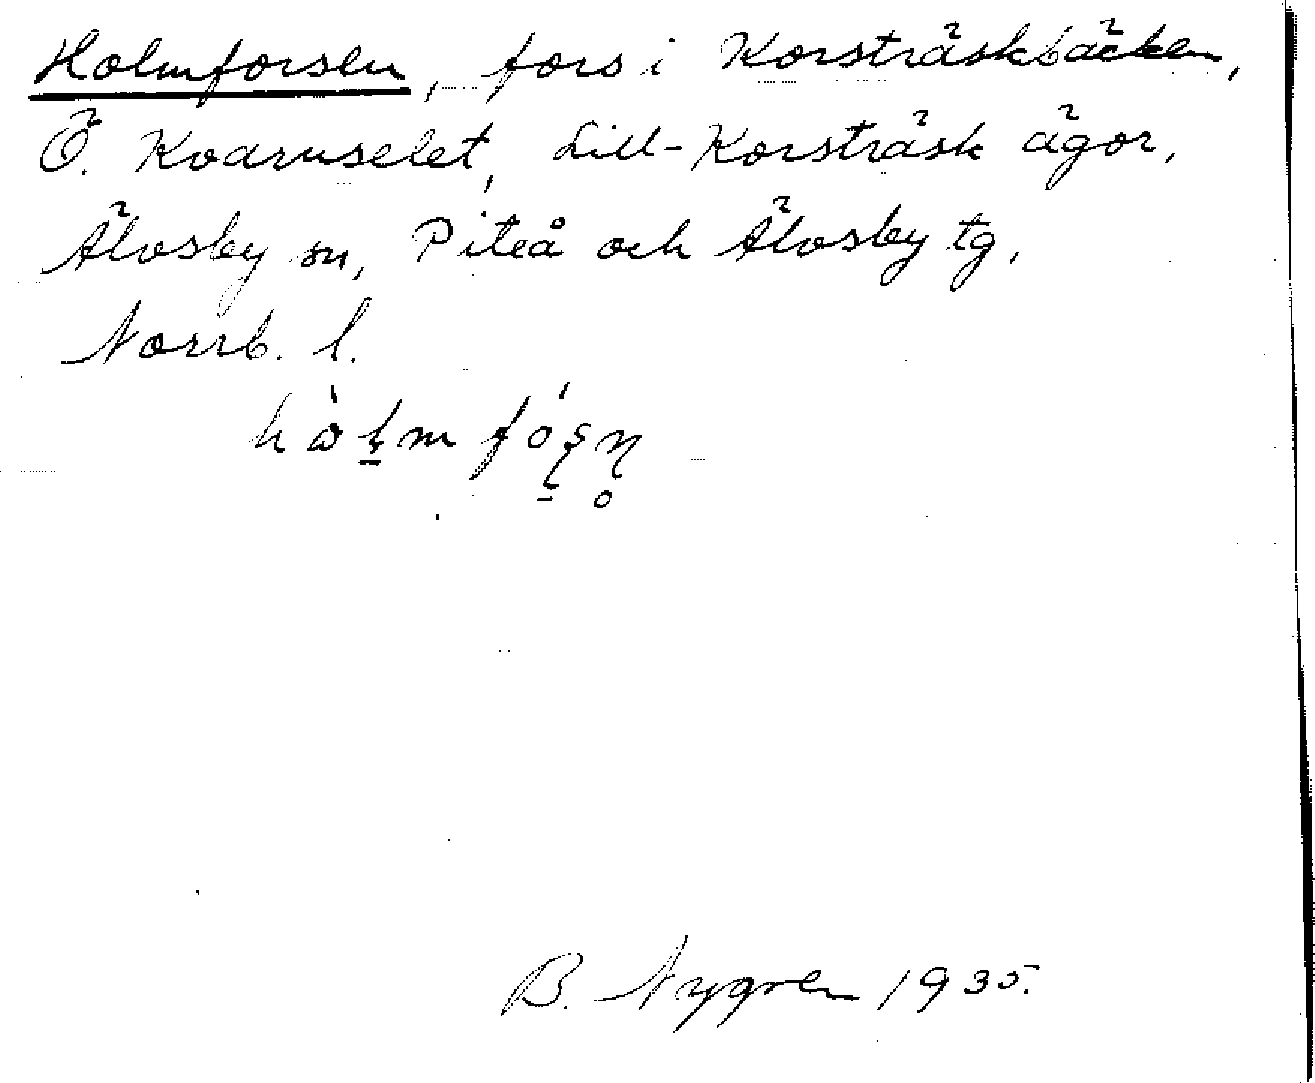 Holmforsen, fors i Korsträskbäcken,
Ö. Kvarnselet, Lill-Korsträsk ägor,
Älvsby sn, Piteå och Älvsby tg,
Norrb. l.
B. Nygren 1935.